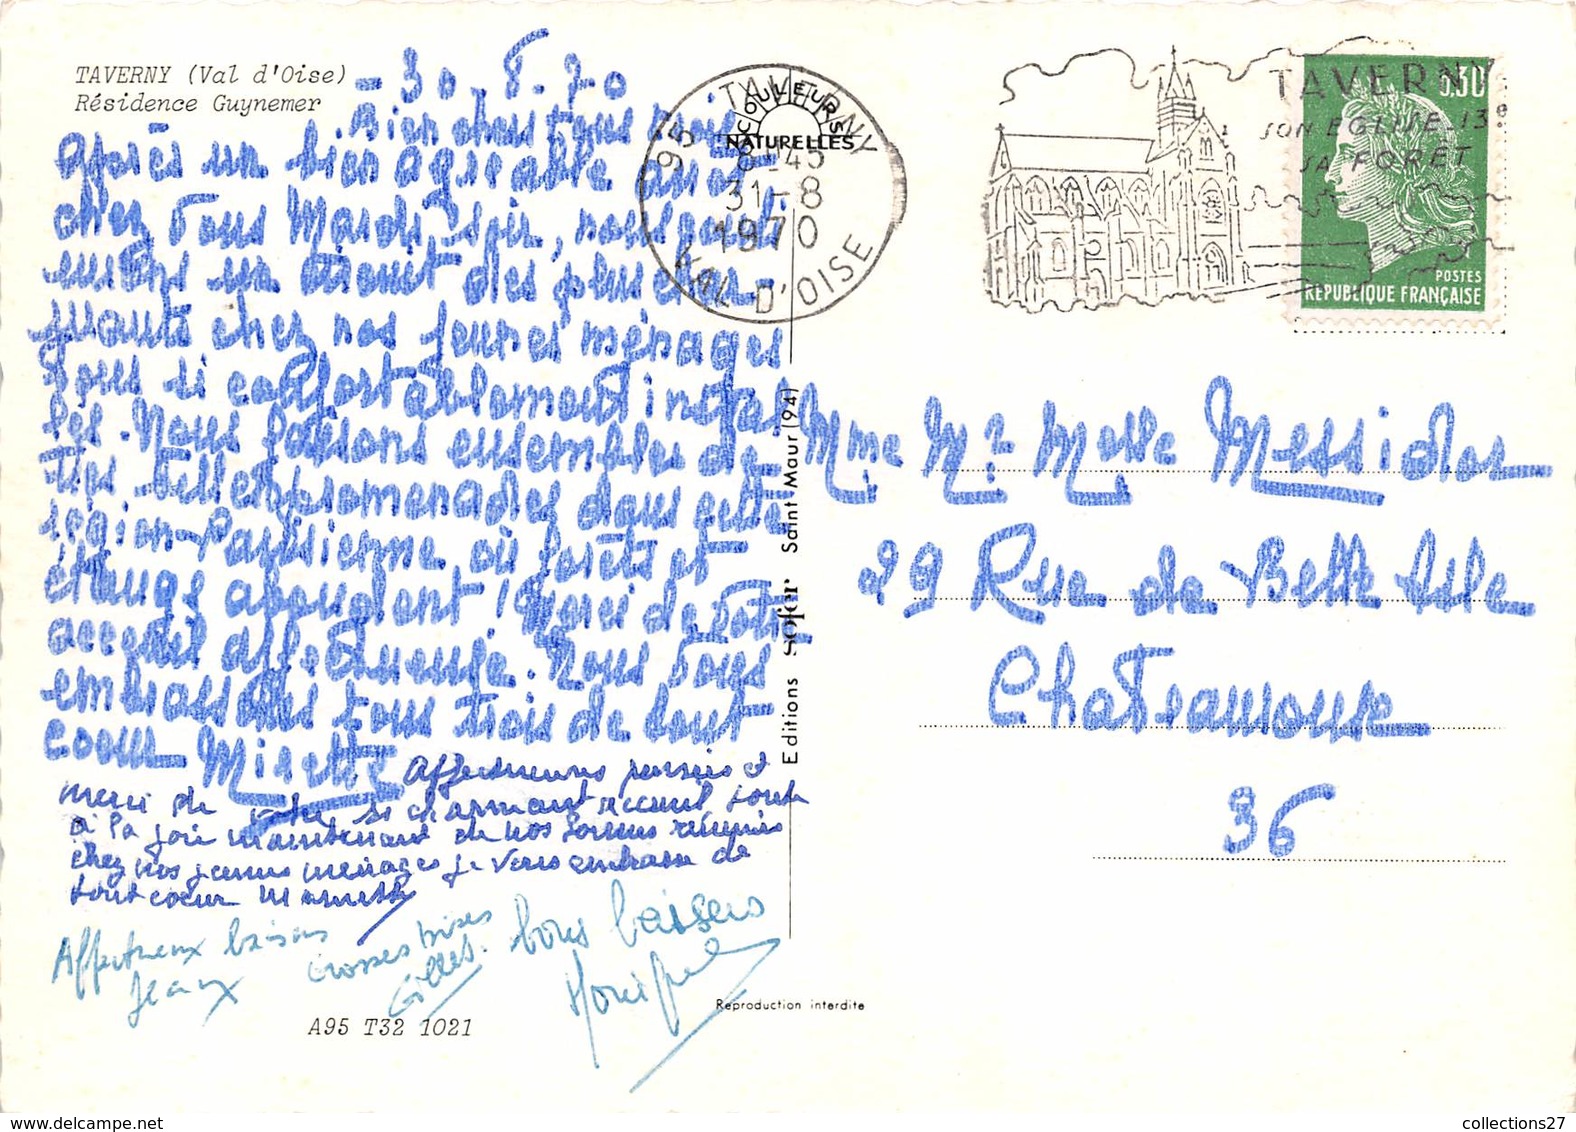 TAVERNY (Val d'Oise)
Résidence Guynemer
30.8.70
Bien chers tous trois
Après un bien agréable arrêt
chez vous Mardi soir, nous pour-
suivons un circuit des plus char-
mants chez nos jeunes ménages
tous si confortablement instal-
lés. Nous faisons ensembles de
très belles promenades dans cette
région-Parisienne où forêts et
étangs abondent! Merci de votre
accueil affectueux. Nous vous
embrassons tous trois de tout
coeur Mirette
Affectueuses pensées et
merci de votre si charmant accueil toute
à la joie maintenant de nos réunis
chez nos jeunes ménages je vous embrasse de
tout coeur
Affectueux baisers
Jeaux
Grosses bises
Gilles.
bons baisers
A95 T32 1021
COULEURS
NATURELLES
95 TAVERNY
8 45
31-8
1970
VAL D'OISE
Editions sofer Saint-Maur (94)
Reproduction interdite
TAVERNY
SON EGLISE 13e
SA FORET
0.30
POSTES
REPUBLIQUE FRANÇAISE
Mme Mr Melle Messidor
29 Rue de Belle Isle
Chateauroux
36
collections27